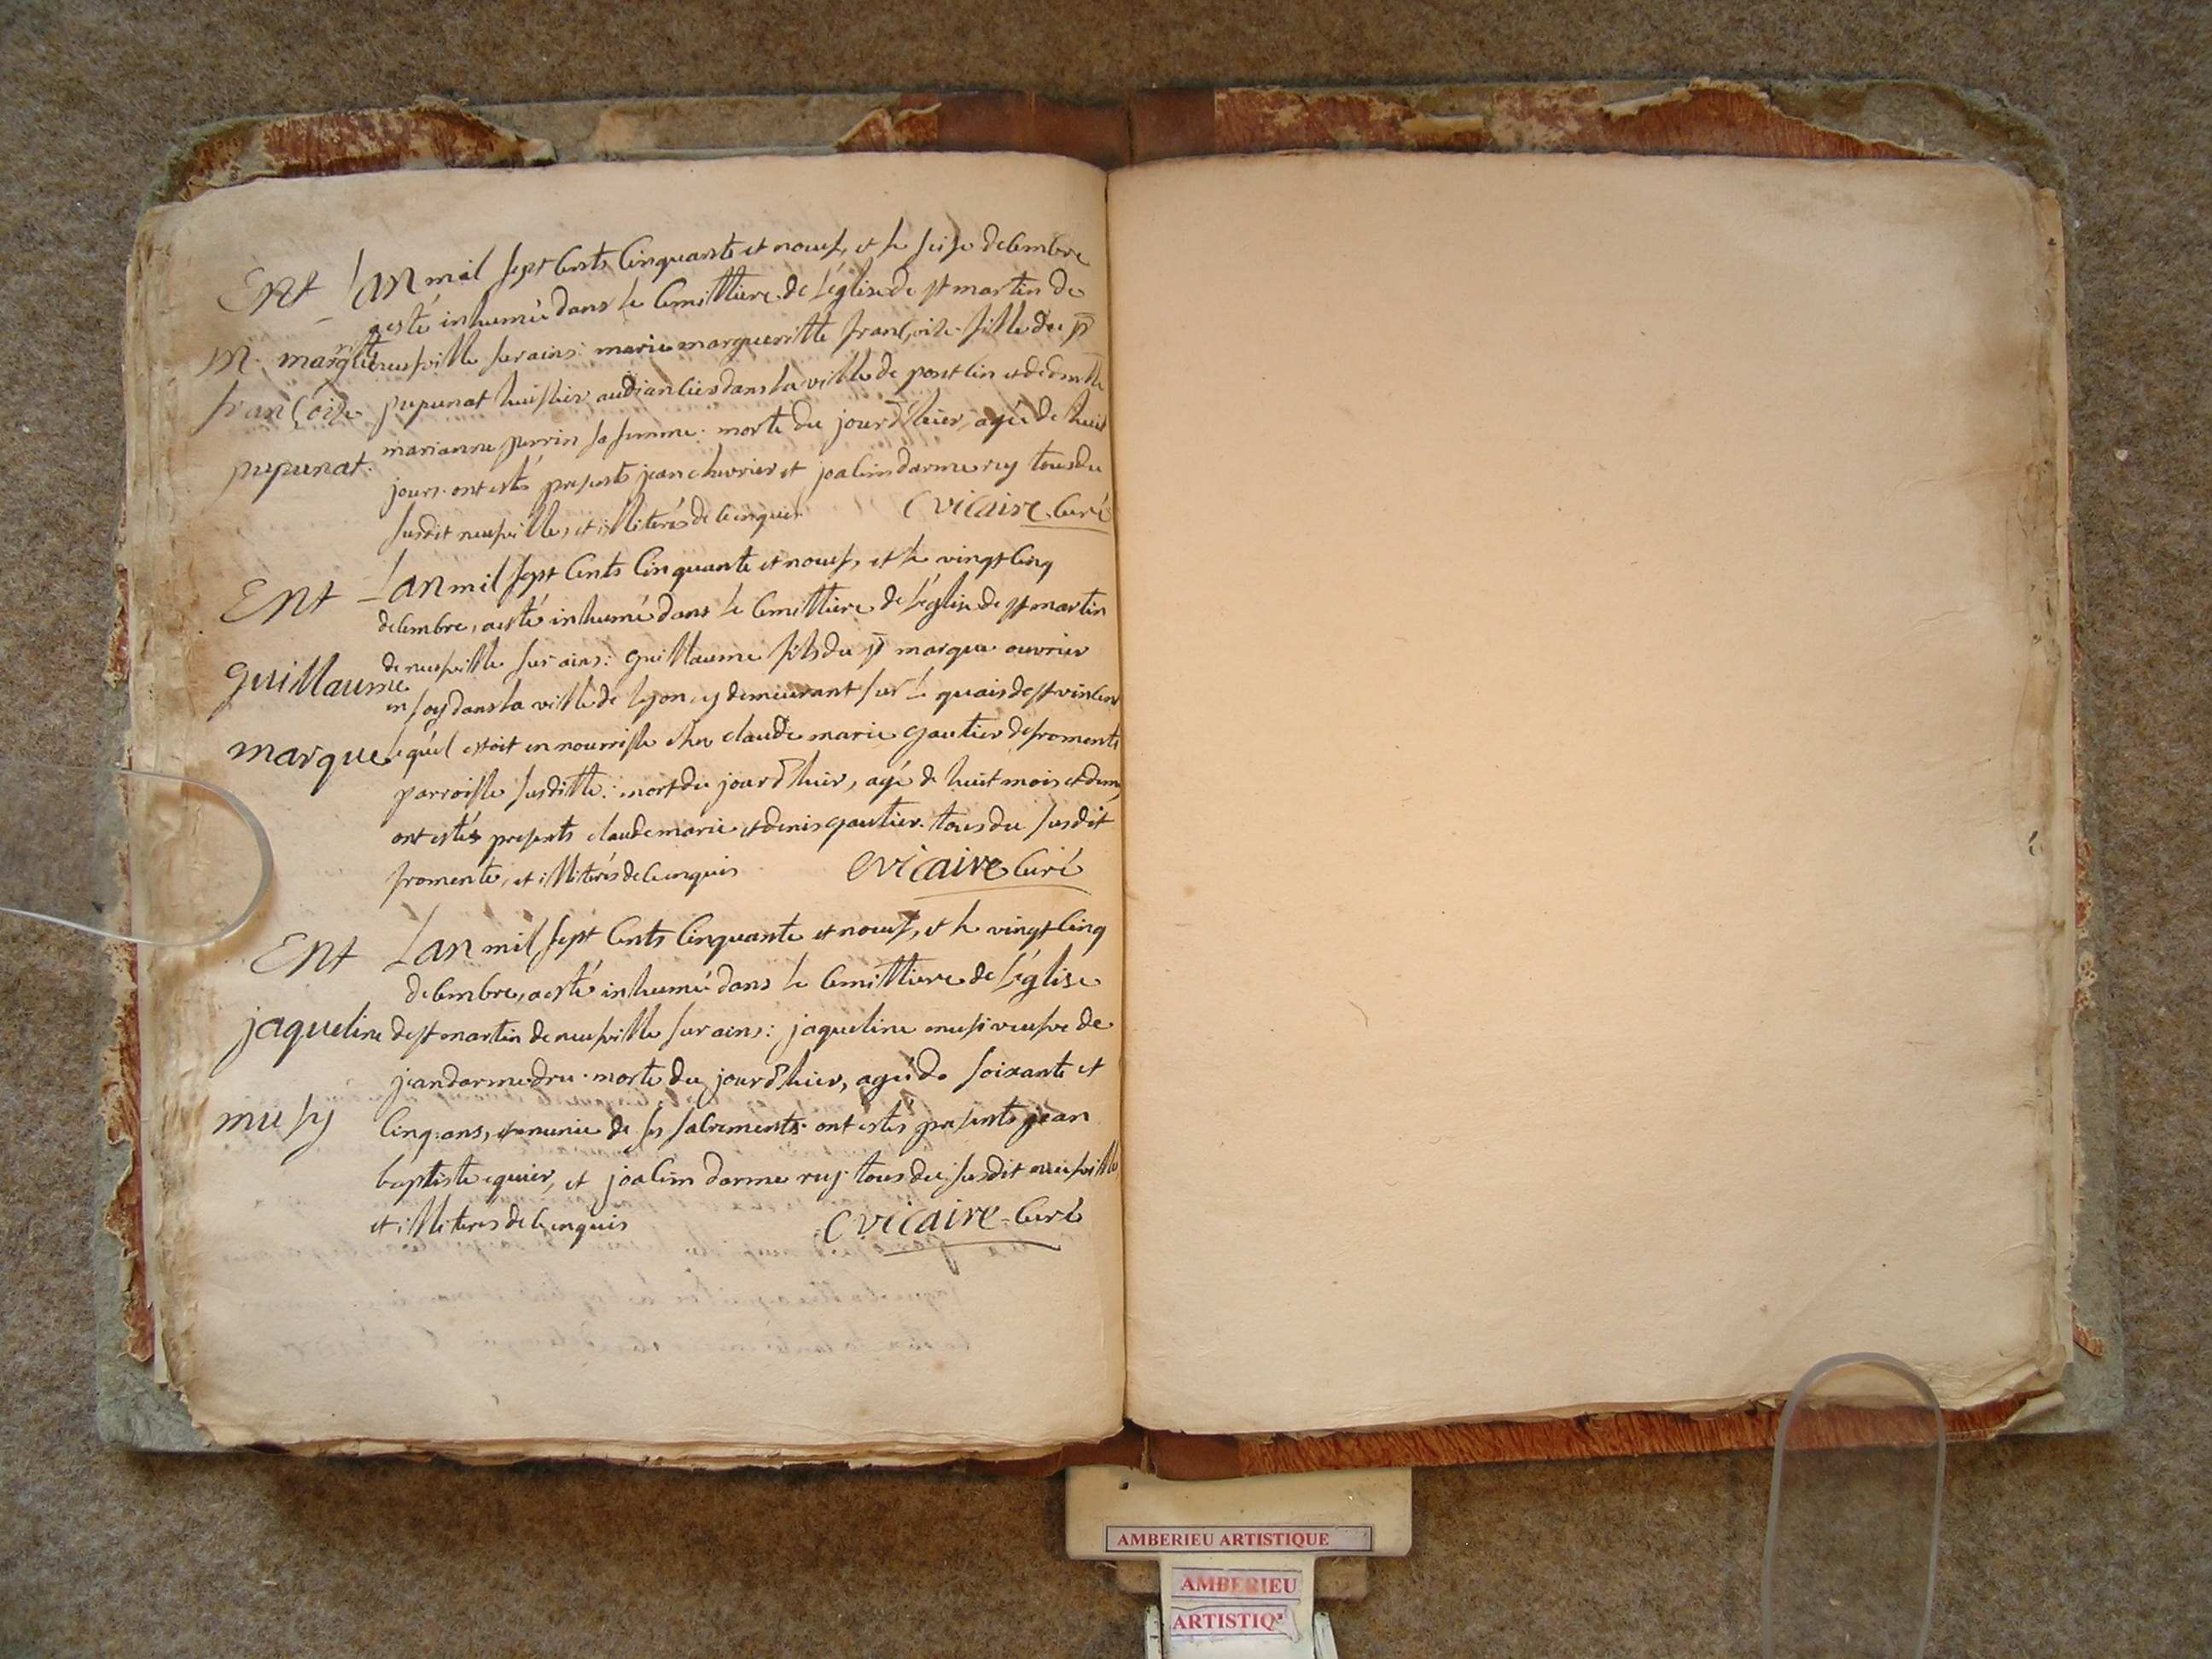 Ent Lan mil sept cents cinquante et noeuf, et le seise decembre
a esté inhumé dans le cemittiere de l'église de st martin de
m. margueritte neufville sur ains: marie margueritte françoise fille du sr
françoise pupunat huissier audiancier dans la ville de pontcin et de dmlle
marianne perrin sa femme. morte du jour d'hier, agée de huit
pupunat. jours. ont estés presents jean chevrier et joacim darmeruy tous du
susdit neufville, et illiterés de ce enquis. C vicaire Curé
Ent Lan mil sept cents cinquante et noeuf, et le vingt cinq
decembre, a esté inhumé dans le cemittiere de l'église de st martin
guillaume de neufville sur ains: guillaume fils du sr marque ouvrier
en soy dans la ville de lyon, y demeurant sur le quais de st vincent
marque lequel estoit en nourrisse chez claude marie gautier de fromente
parroisse susditte: mort du jour d'hier, agé de huit mois et demi
ont estés presents claude marie et denis gautier. tous du susdit
fromente, et illiterés de ce enquis C vicaire Curé
Ent Lan mil sept cents cinquante et noeuf, et le vingt cinq
decembre, a esté inhumé dans le cemittiere de l'église
jaqueline de st martin de neufville sur ains: jaqueline musi veufve de
jean darmedru. morte du jour d'hier, agée de soixante et
musy cinq ans, et munie de ses sacrements. ont estés presents jean
baptiste equier, et joacim darmeruy tous du susdit neufville
et illiterés de ce enquis C vicaire Curé
AMBERIEU ARTISTIQUE
AMBERIEU
ARTISTIQ